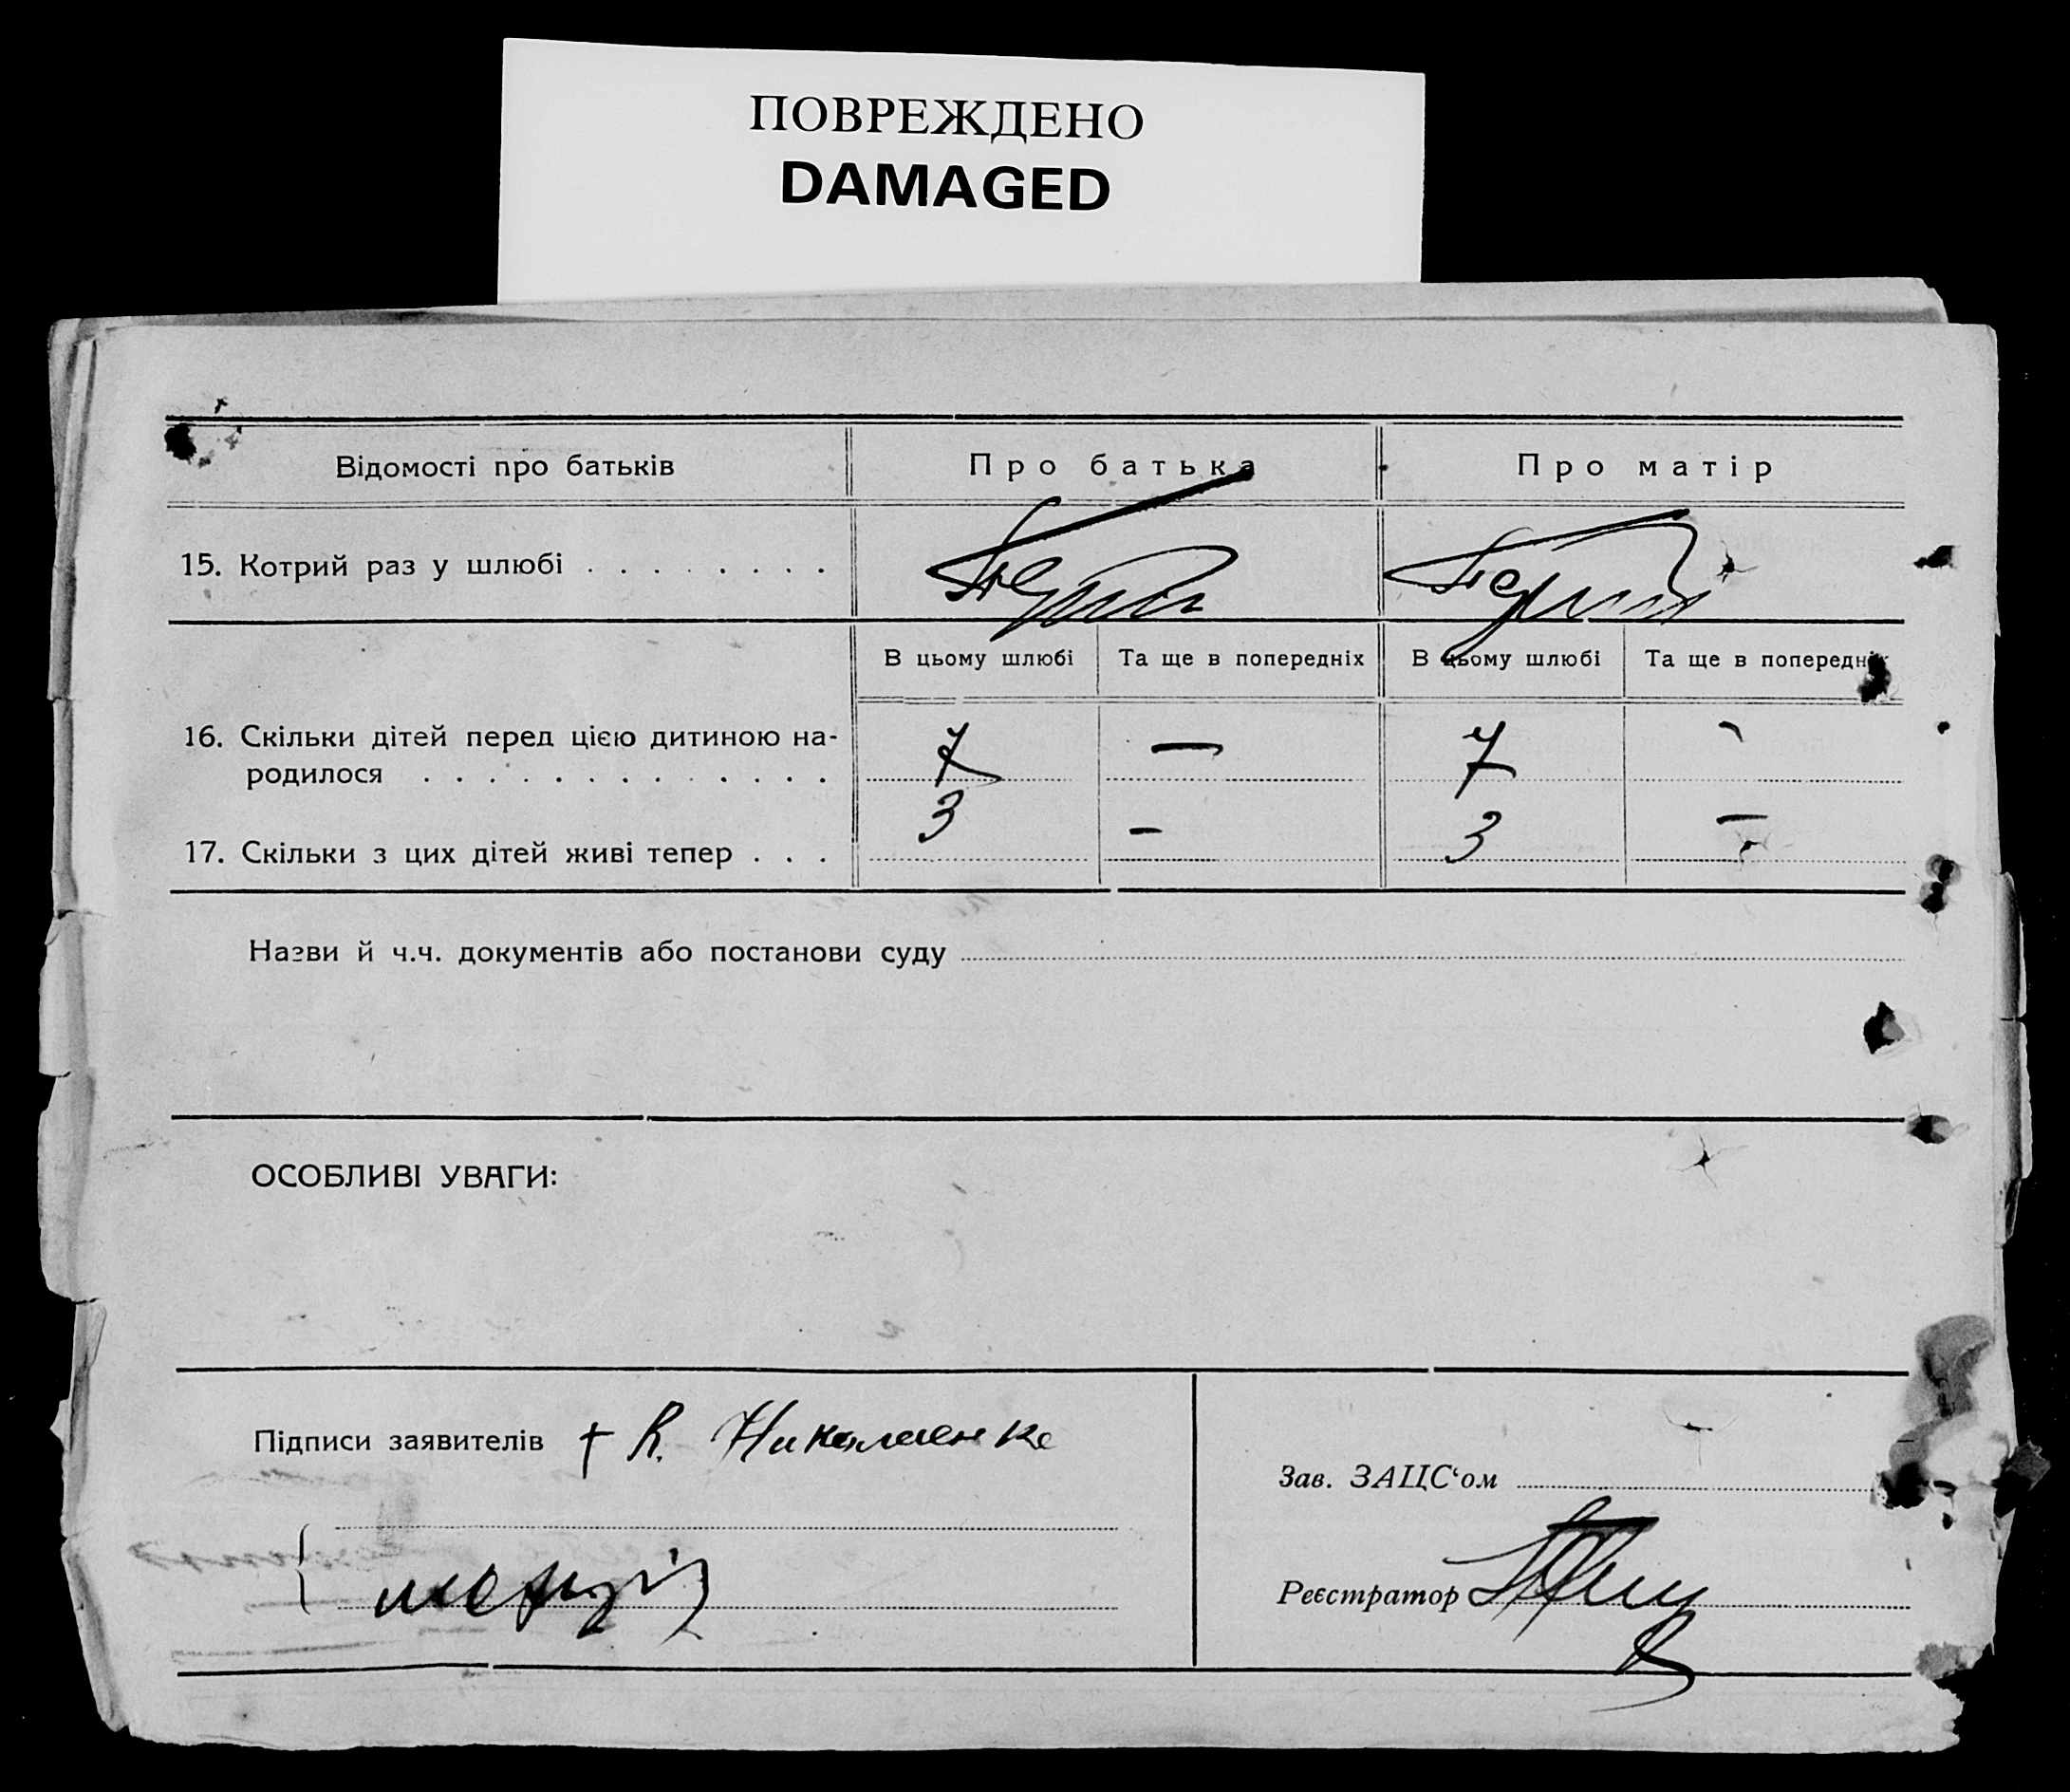 ПОВРЕЖДЕНО
DAMAGED
Відомості про батьків
Про батька
Про матір
15. Котрий раз у шлюбі . . . . . . . .
В цьому шлюбі
Та ще в попередніх
В цьому шлюбі
Та ще в попередніх
16. Скільки дітей перед цією дитиною на-
родилося . . . . . . . . . . . . .
7 — 7 -
17. Скільки з цих дітей живі тепер . . .
3 - 3 —
Назви й ч.ч. документів або постанови суду
ОСОБЛИВІ УВАГИ:
Підписи заявителів
Зав. ЗАЦС‘ом
Реєстратор